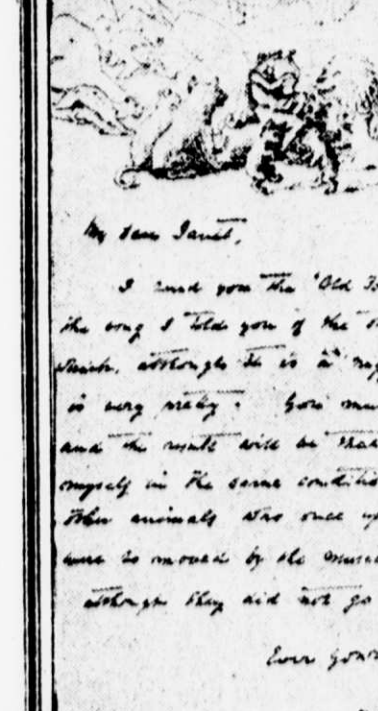 My dear Janet,
I send you the 'Old
the song I told you of the
which, although it is a
is very pretty. You
and the result will be that
myself in the same
other animals who once
were so moved by the
although they did not go
Ever